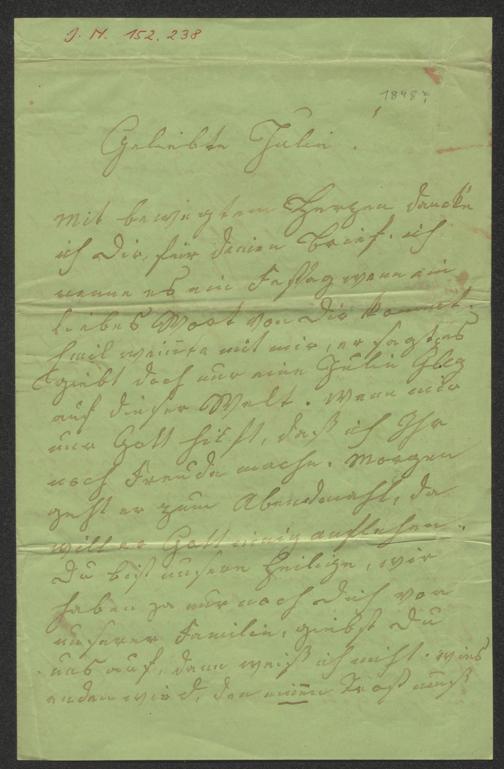 J. N. 152.238
1848?
Geliebte Julie!
Mit bewegtem Herzen dancke
ich Dir, für deinen Brief. ich
nenne es ein Festtag wenn ein
liebes Wort von Dir kommt.
Emil weinte mit mir, er sagt es
giebt doch nur eine Julie
auf dieser Welt. Wenn mir
nur Gott hilft, daß ich Ihr
noch Freude mache. Morgen
geht er zum Abendmahl, da
will er Gott innig anflehen.
Du bist unsere Heilige, wir
haben ja nur noch Dich von
unserer Familie, giebst Du
uns auf, dann weiß ich nicht wies
enden wird, den einen Trost muß